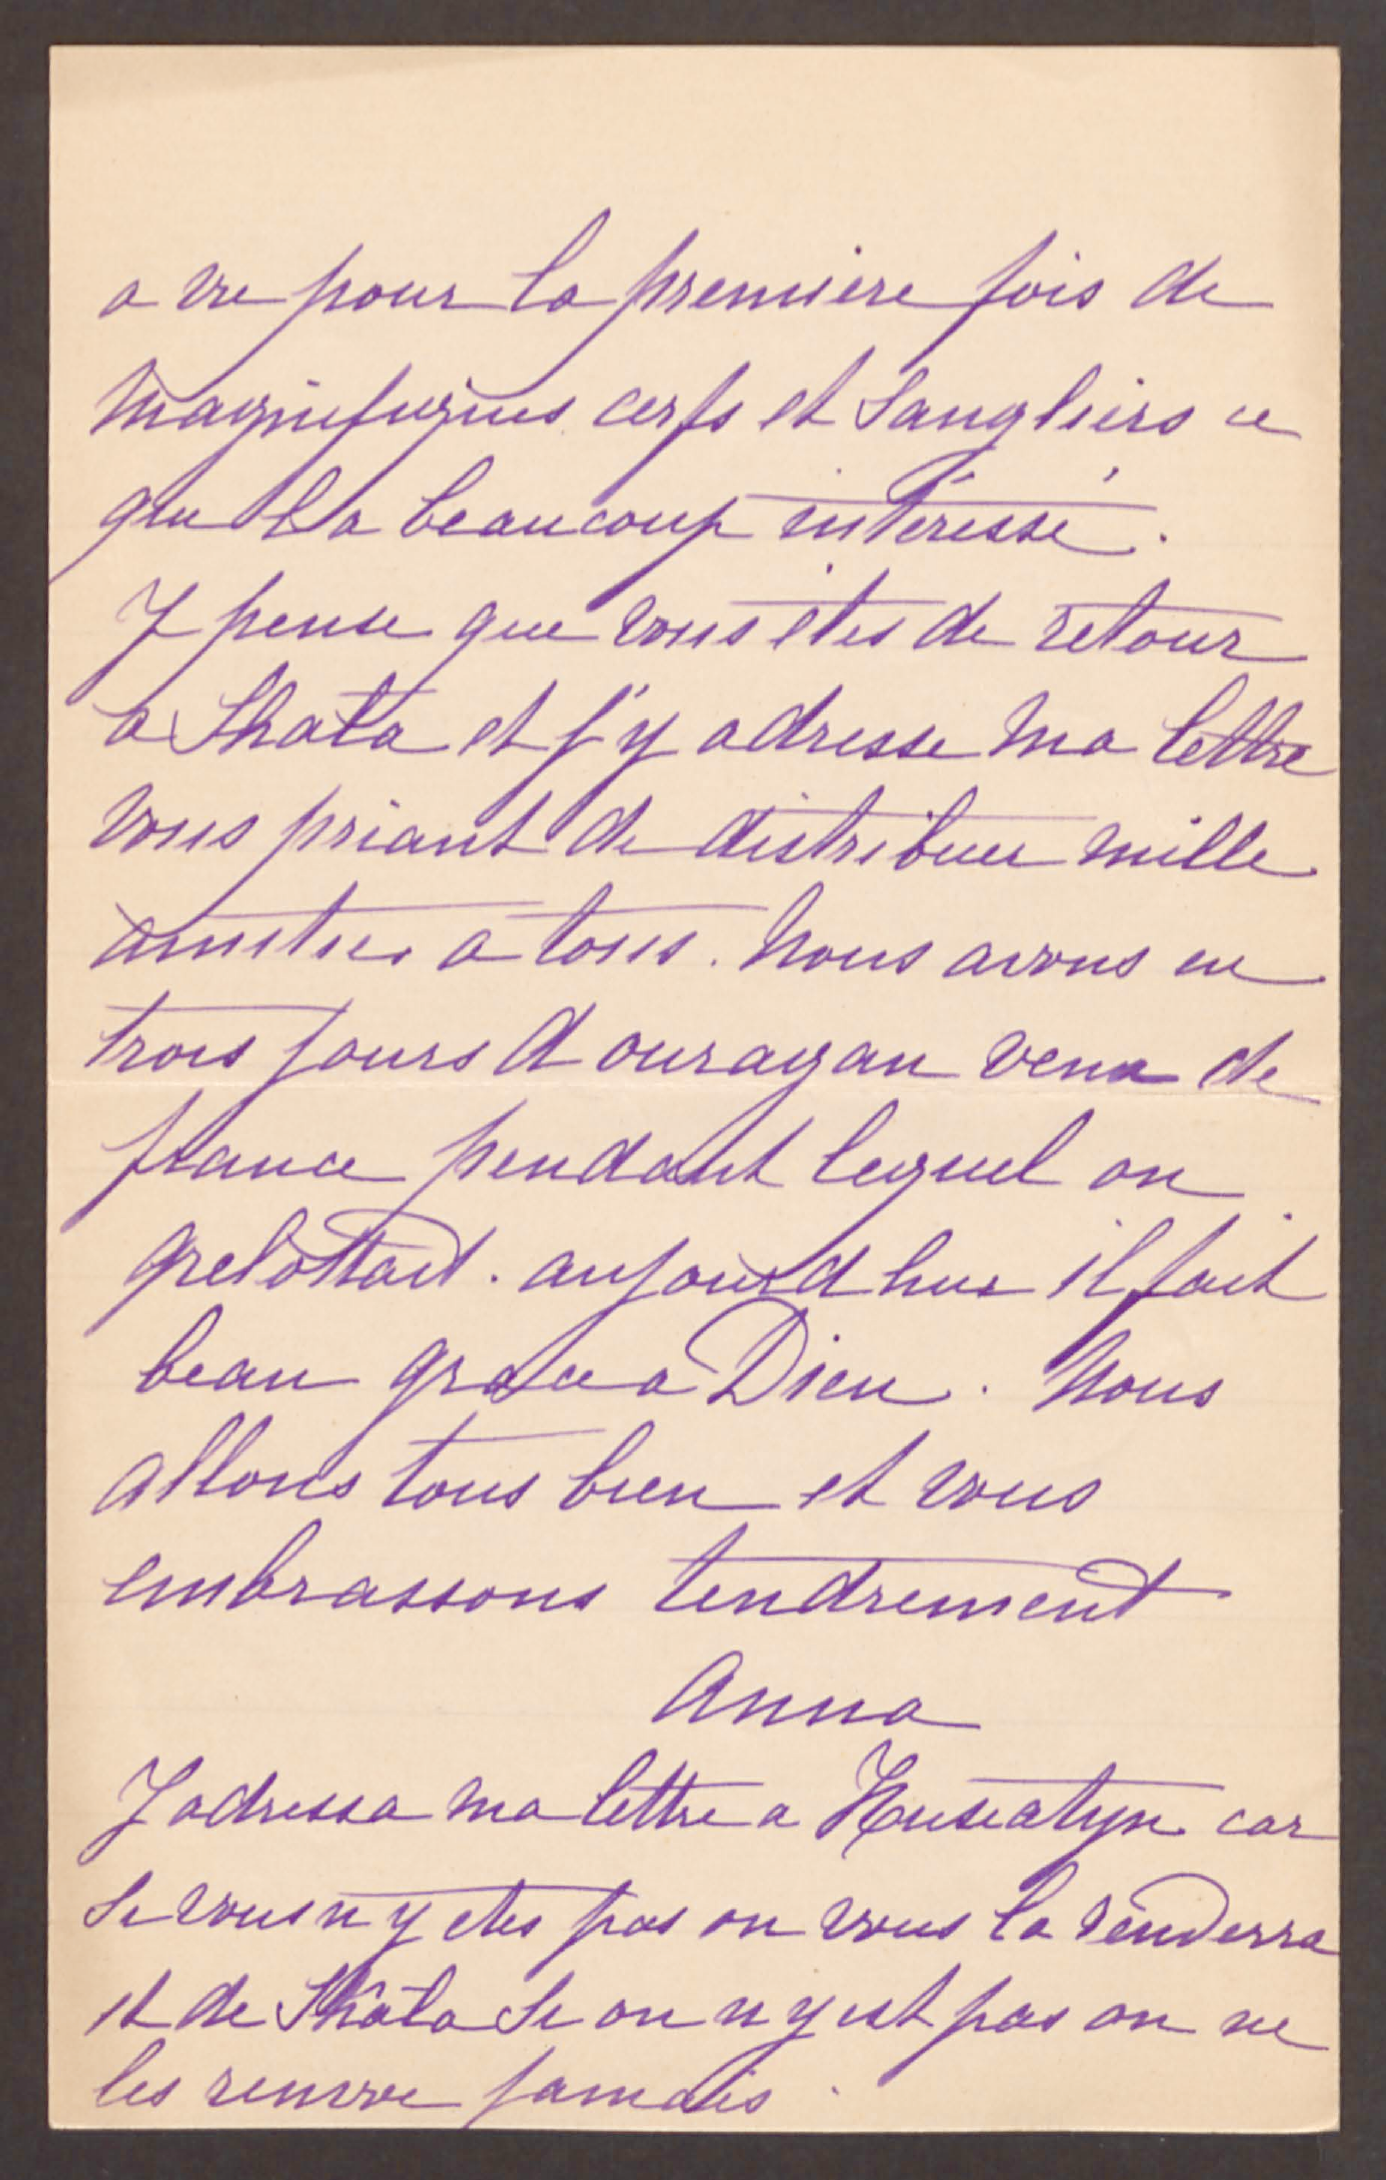 a vu pour la premiere fois de
magnifiques cerfs et sangliers ce
qui l'a beaucoup intéressé.
J pense que vous etes de retour
a Skała et j'y adresse ma lettre
vous priant de distribuer mille
amities a tous. Nous avons eu
trois jours d ouragan venu de
france pendant lequel on
grelottait. aujourd hui il fait
beau grace a Dieu. Nous
allons tous bien et vous
embrassons tendrement
Anna
J adresse ma lettre a Husiatyn car
si vous n y etes pas on vous la renderra
et de Skała si on n y est pas on ne
les renvoe jamais.